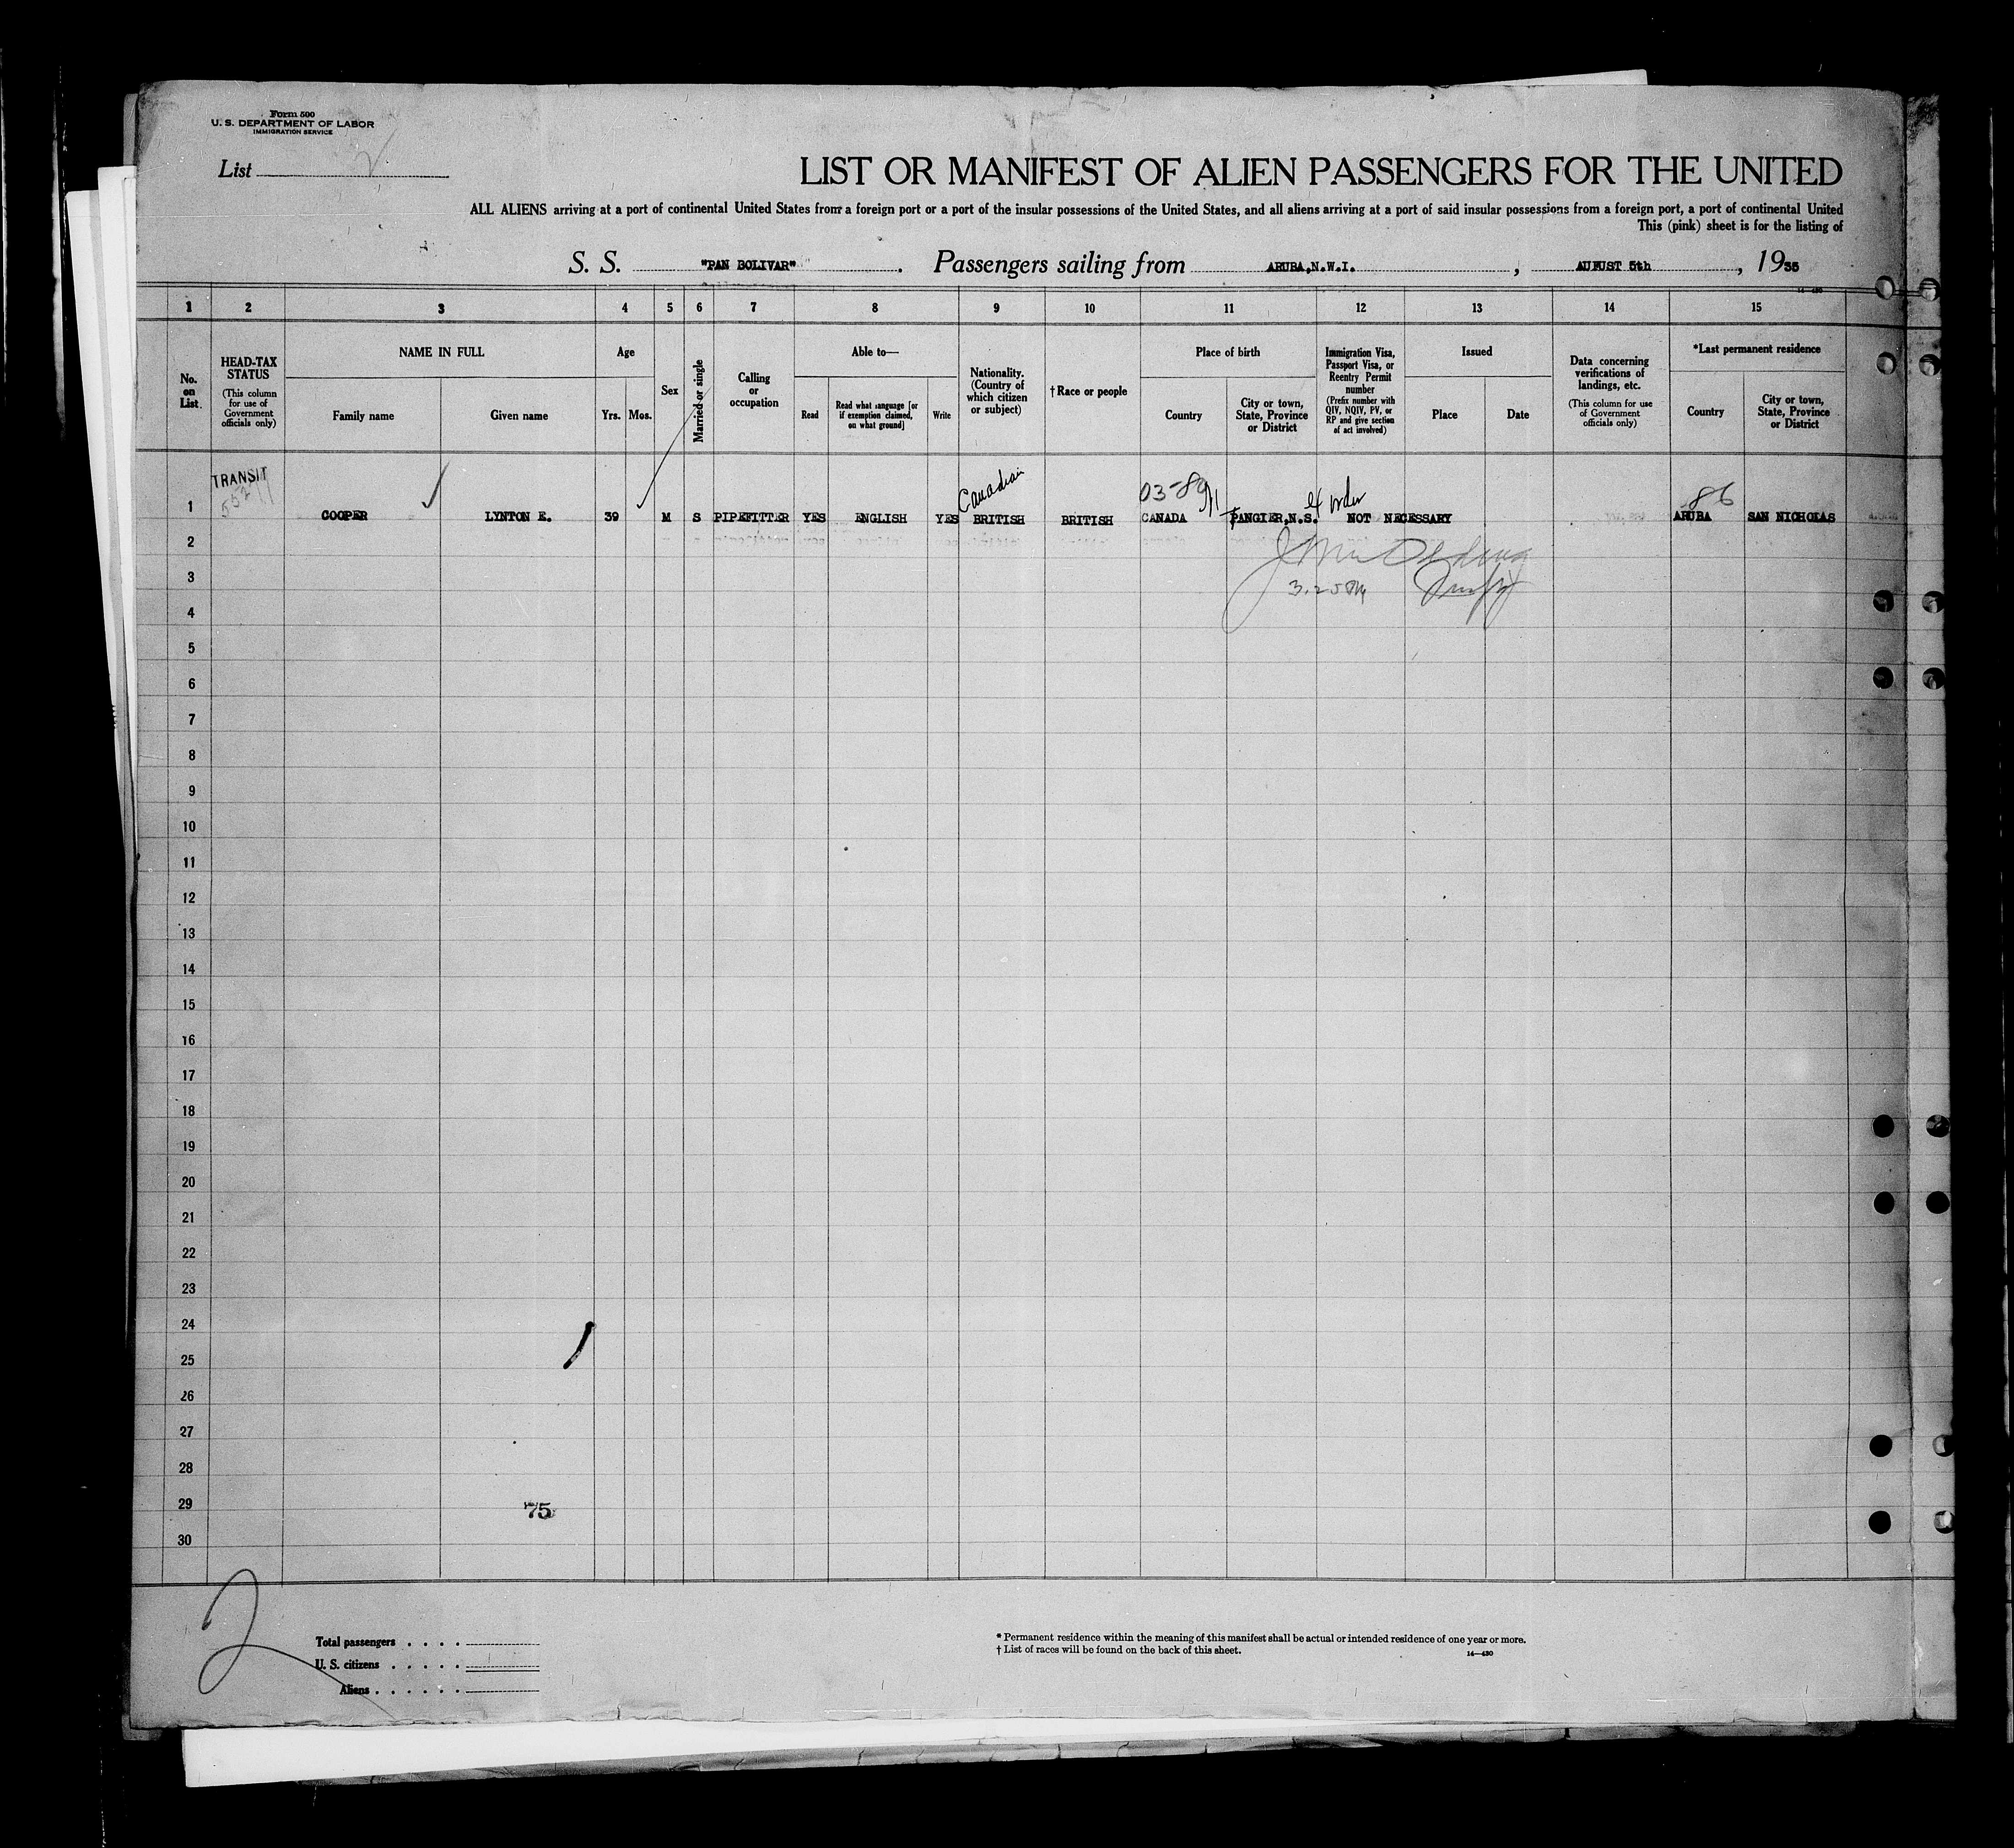 Form 500
U. S. DEPARTMENT OF LABOR
IMMIGRATION SERVICE
List 2
LIST OR MANIFEST OF ALIEN PASSENGERS FOR THE UNITED
ALL ALIENS arriving at a port of continental United States from a foreign port or a port of the insular possessions of the United States, and all aliens arriving at a port of said insular possessions from a foreign port, a port of continental United
This (pink) sheet is for the listing of
S. S. "PAN BOLIVAR". Passengers sailing from ARUBA,N.W.I., AUGUST 5th, 1935
14—430
1 2 3 4 5 6 7 8 9 10 11 12 13 14 15
No. on List
HEAD-TAX STATUS (This column for use of Government officials only)
NAME IN FULL
Family name
Given name
Age
Yrs.
Mos.
Sex
Married or single
Calling or occupation
Able to—
Read
Read what language [or if exemption claimed, on what ground]
Write
Nationality. (Country of which citizen or subject)
† Race or people
Place of birth
Country
City or town, State, Province or District
Immigration Visa, Passport Visa, or Reentry Permit number (Prefix number with QIV, NQIV, PV, or RP and give section of act involved)
Issued
Place
Date
Data concerning verifications of landings, etc. (This column for use of Government officials only)
*Last permanent residence
Country
City or town, State, Province or District
TRANSIT
Canadian
03-89
ex order
86
1 COOPER LYNTON E. 39 M S PIPEFITTER YES ENGLISH YES BRITISH BRITISH CANADA TANGIER,N.S. NOT NECESSARY ARUBA SAN NICHOLAS
2
3
4
5
6
7
8
9
10
11
12
13
14
15
16
17
18
19
20
21
22
23
24
25
26
27
28
29
75
30
2
Total passengers . . . .
U. S. citizens . . . . .
Aliens . . . . . .
* Permanent residence within the meaning of this manifest shall be actual or intended residence of one year or more.
† List of races will be found on the back of this sheet.
14—430